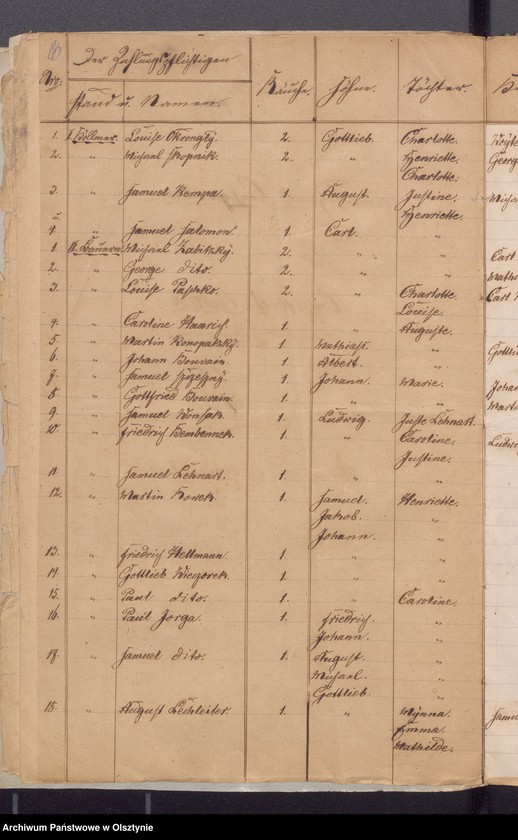 10
Der Zahlungspflichtigen
Nro: Stand u. Namen. Rauche. Söhne. Töchter.
1. I Köllmer. Louise Okrongly. 2. Gottlieb. Charlotte.
2. " Michael Skopnik. 2. " Henriette.
Charlotte.
3. " Samuel Kempa. 1. August. Justine.
Henriette.
4. " Samuel Salomon. 1. Carl. "
1. II. Bauern. Michael Zabitzky. 2. " " Carl
2. " George dito. 2. " "
3. " Louise Paschko. 2. " Charlotte. Carl
Louise.
4. " Caroline Kaarisch. 1. " Auguste.
5. " Martin Konopatzky. 1. Mathias. "
6. " Johann Bouvain. 1. Albert. "
7. " Samuel 1. Johann. Marie.
8. " Gottfried Bouvain. 1. " "
9. " Samuel Konsak. 1. Ludwig. Juste Lehnart.
10. " Friedrich Bembennek. 1. " Caroline.
Justine.
11. " Samuel Lehnart. 1. "
12. " Martin Borek. 1. Samuel. Henriette.
Jakob. "
Johann. "
13. " Friedrich Hellmann. 1. " "
14. " Gottlieb Wieczorek. 1. " "
15. " Paul dito. 1. " Caroline.
16. " Paul Jorga. 1. Friedrich. "
Johann. "
17. " Samuel dito. 1. August. "
Michael. "
Gottlieb. "
18. " August Lechleiter. 1. " Mynna.
Emma.
Mathilde.
Archiwum Państwowe w Olsztynie